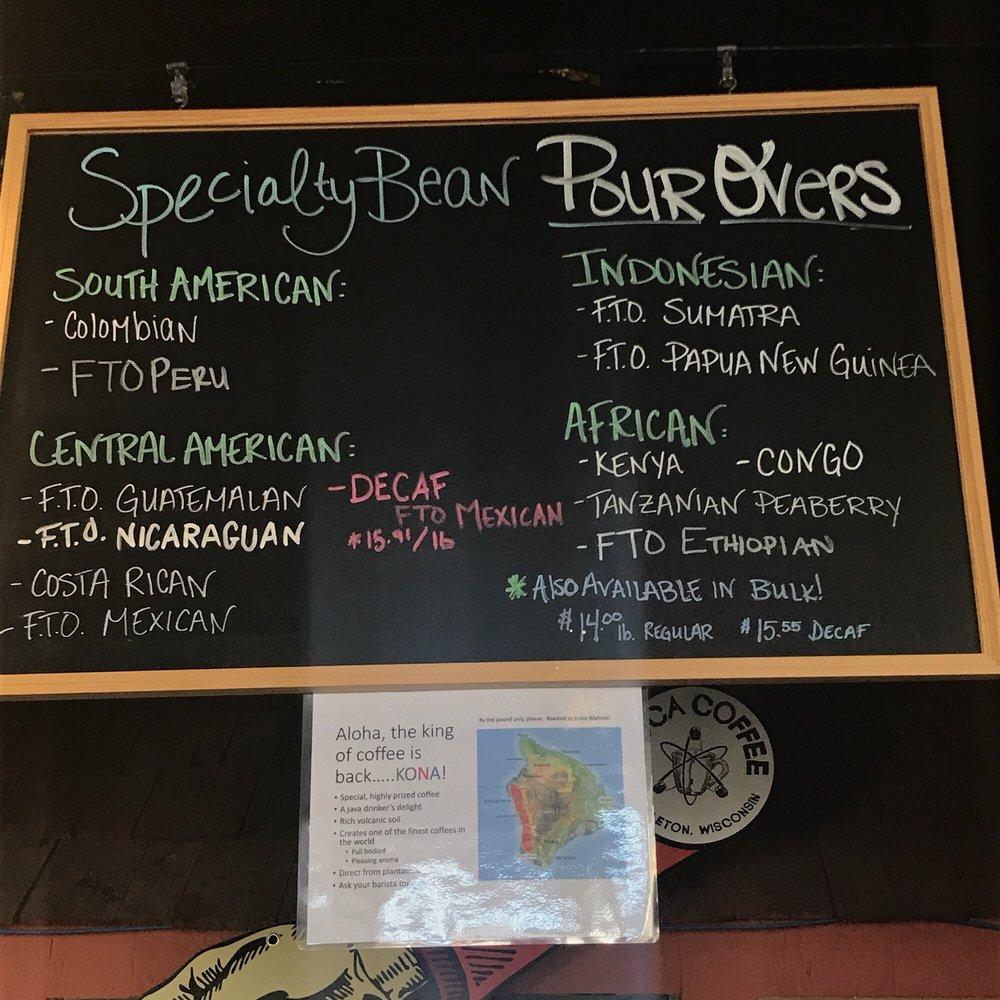 Specialty Bean Pour Overs
SOUTH AMERICAN:
- Colombian
- FTO PERU
CENTRAL AMERICAN:
- F.T.O. GUATEMALAN
- F.T.O. NICARAGUAN
- COSTA RICAN
- F.T.O. MEXICAN
- DECAF
FTO MEXICAN
$15.91/lb
INDONESIAN:
- F.T.O. SUMATRA
- F.T.O. PAPUA NEW GUINEA
AFRICAN:
- KENYA - CONGO
- TANZANIAN PEABERRY
- FTO ETHIOPIAN
* Also Available in Bulk!
$14.00 lb. REGULAR $15.55 DECAF
Aloha, the king
of coffee is
back.....KONA!
• Special, highly prized coffee
• A java drinker's delight
• Rich volcanic soil
• Creates one of the finest coffees in
the world
• Full bodied
• Pleasing aroma
• Direct from
• Ask your barista
By the pound only, please. Roasted to order. Mahalo!
CA COFFEE
ETON, WISCONSIN